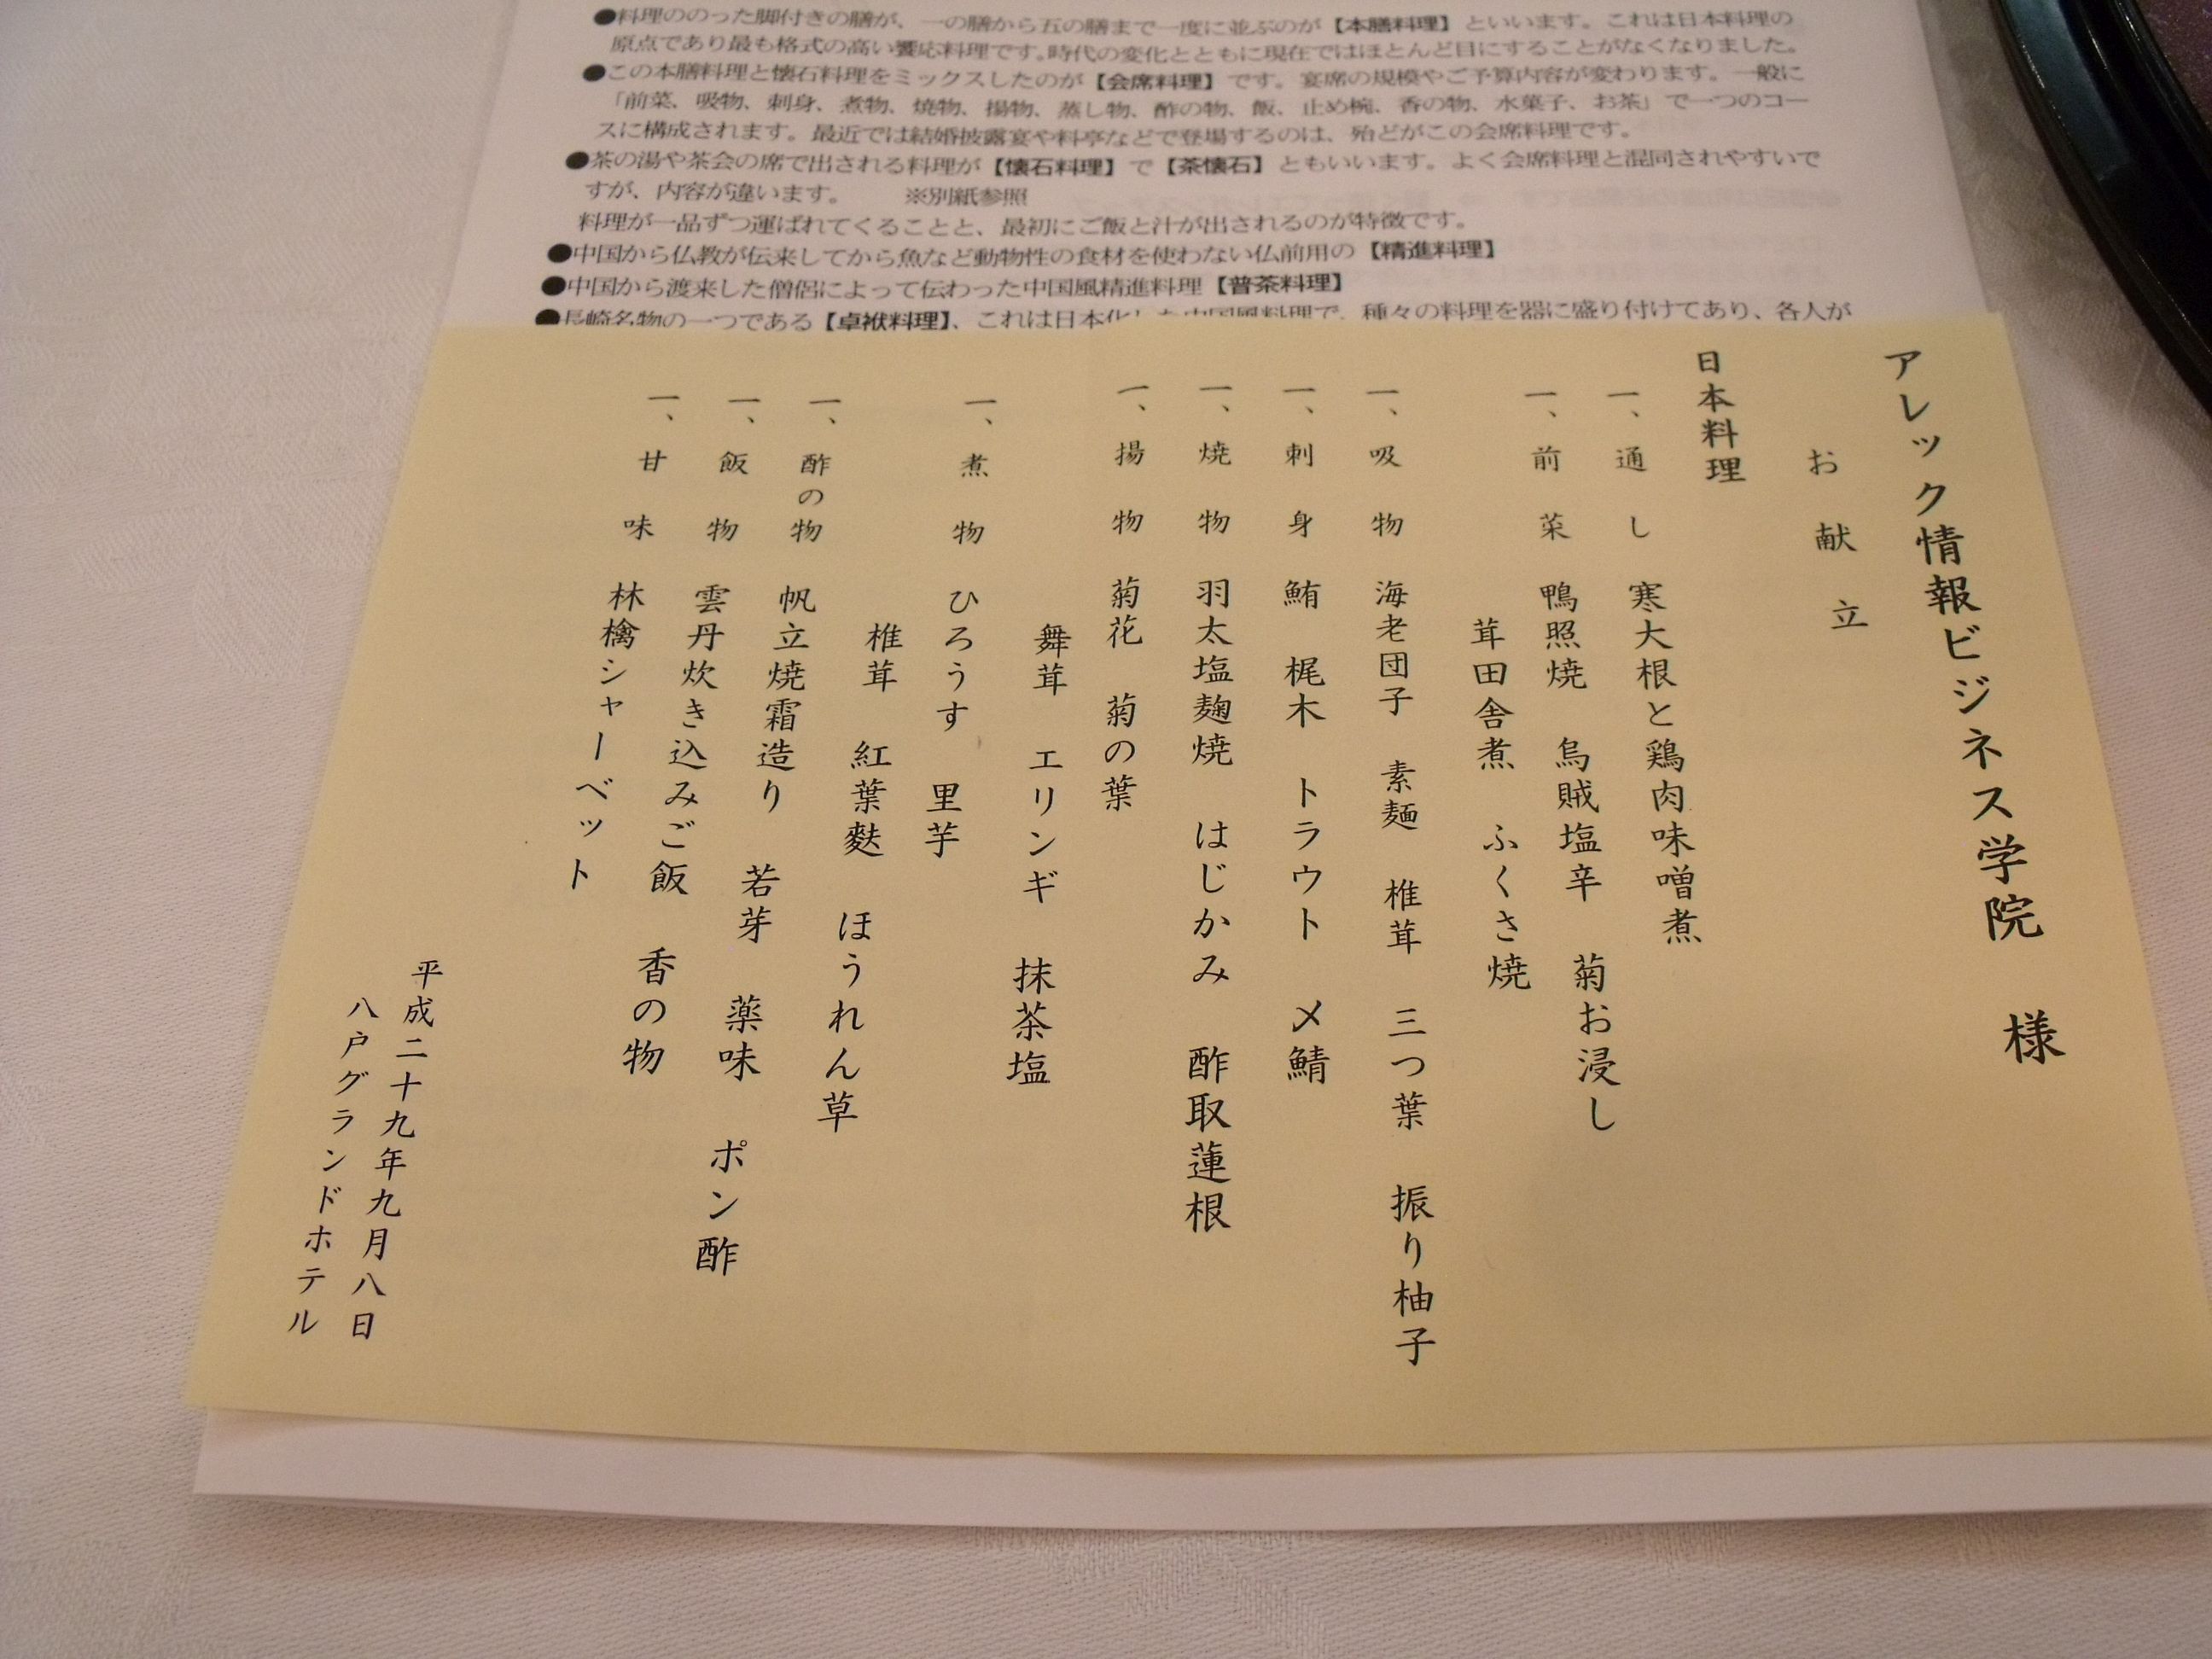 ●料理ののった脚付きの膳が、一の膳から五の膳まで一度に並ぶのが【本膳料理】といいます。これは日本料理の
原点であり最も格式の高い饗応料理です。時代の変化とともに現在ではほとんど目にすることがなくなりました。
●この本膳料理と懐石料理をミックスしたのが【会席料理】です。宴席の規模やご予算内容が変わります。一般に
「前菜、吸物、刺身、煮物、焼物、揚物、蒸し物、酢の物、飯、止め椀、香の物、水菓子、お茶」で一つのコー
スに構成されます。最近では結婚披露宴や料亭などで登場するのは、殆どがこの会席料理です。
●茶の湯や茶会の席で出される料理が【懐石料理】で【茶懐石】ともいいます。よく会席料理と混同されやすいで
すが、内容が違います。　※別紙参照
料理が一品ずつ運ばれてくることと、最初にご飯と汁が出されるのが特徴です。
●中国から仏教が伝来してから魚など動物性の食材を使わない仏前用の【精進料理】
●中国から渡来した僧侶によって伝わった中国風精進料理【普茶料理】
●長崎名物の一つである【卓袱料理】、これは日本化した中国風料理で、種々の料理を器に盛り付けてあり、各人が
アレック情報ビジネス学院　様
お献立
日本料理
一、通し　寒大根と鶏肉味噌煮
一、前菜　鴨照焼　烏賊塩辛　菊お浸し
茸田舎煮　ふくさ焼
一、吸物　海老団子　素麺　椎茸　三つ葉　振り柚子
一、刺身　鮪　梶木　トラウト　〆鯖
一、焼物　羽太塩麹焼　はじかみ　酢取蓮根
一、揚物　菊花　菊の葉
舞茸　エリンギ　抹茶塩
一、煮物　ひろうす　里芋
椎茸　紅葉麩　ほうれん草
一、酢の物　帆立焼霜造り　若芽　薬味　ポン酢
一、飯物　雲丹炊き込みご飯　香の物
一、甘味　林檎シャーベット
平成二十九年九月八日
八戸グランドホテル